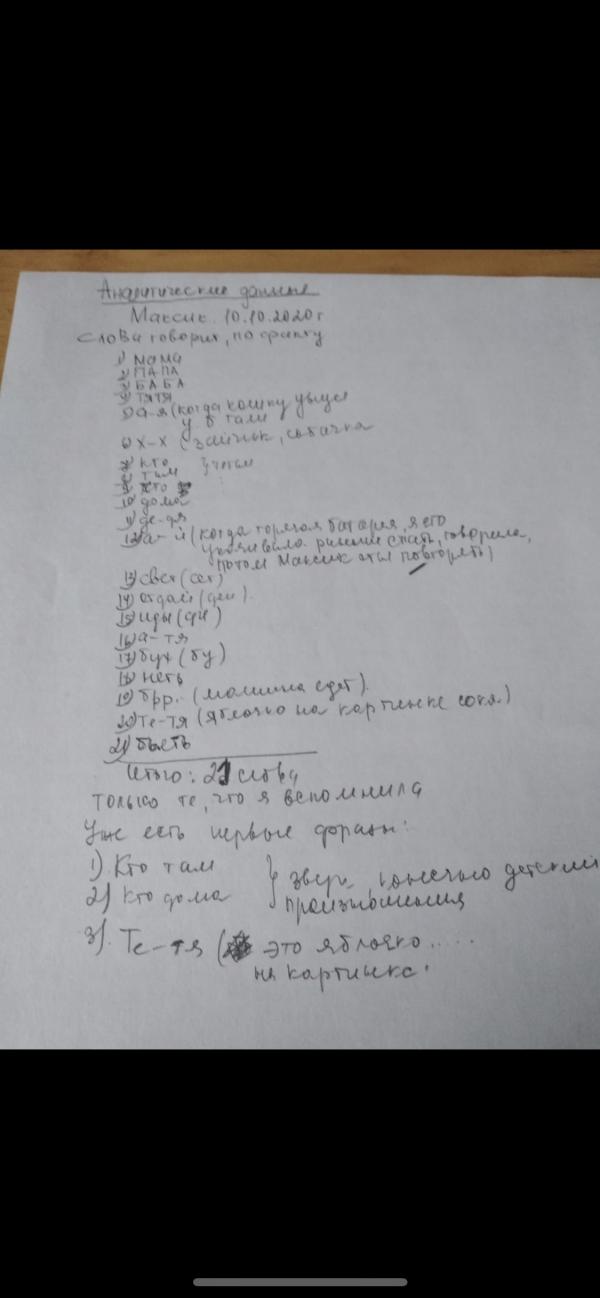 Аналитические данные
Максик. 10.10.2020 г
Слова говорит, по факту
1) мама
2) ПАПА
3) БАБА
4) тятя
5) а-я (когда кошку
6) х-х (зайчик, собачка
7) кто
8) там
9)
10) дома
11) де-дя
12) (когда горячая батарея, я его
говорила,
потом Максик стал повторять)
13) свет (сет)
14) отдай (дай).
15) иди (ди)
16) а-тя
17) бух (бу)
18) неть
19) брр.. (машина едет).
20) те-тя (яблочко на картинке
21) бысть
Итого: 21 слова
только те, что я вспомнила
Уже есть первые фразы:
1) Кто там
2) Кто дома
конечно детский
произношения
3). Те-тя ( это яблочко.....
на картинке.